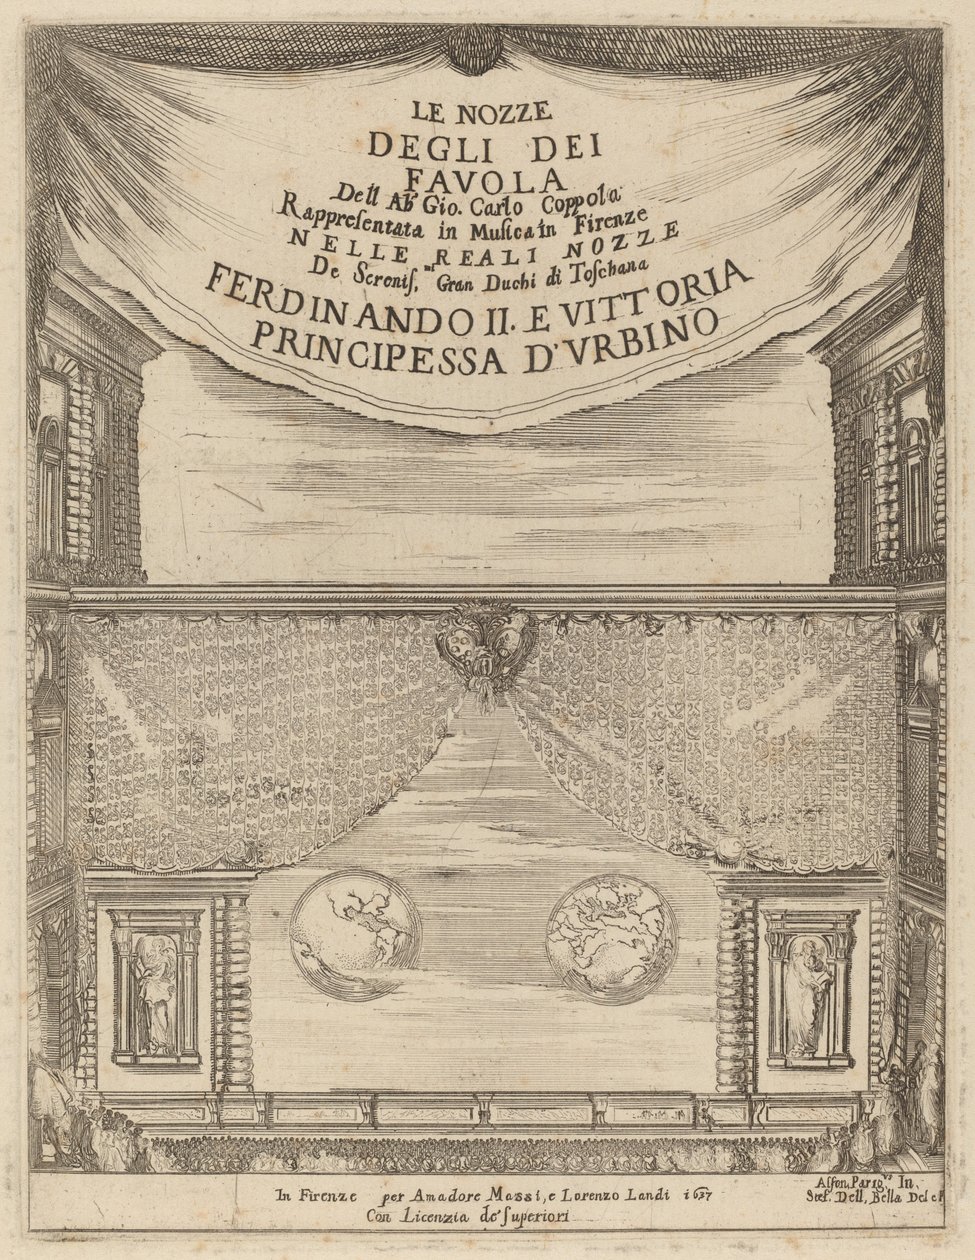 LE NOZZE
DEGLI DEI
FAVOLA
Dell Ab' Gio. Carlo Coppola
Rappreſentata in Muſica in Firenze
NELLE REALI NOZZE
De Sereniſ.mi Gran Duchi di Toſchana
FERDINANDO II. E VITTORIA
PRINCIPESSA D'VRBINO
In Firenze per Amadore Massi, e Lorenzo Landi 1637
Con Licenzia de' Superiori
Alfon, Parigvs In,
Stef. Dell, Bella Del e F